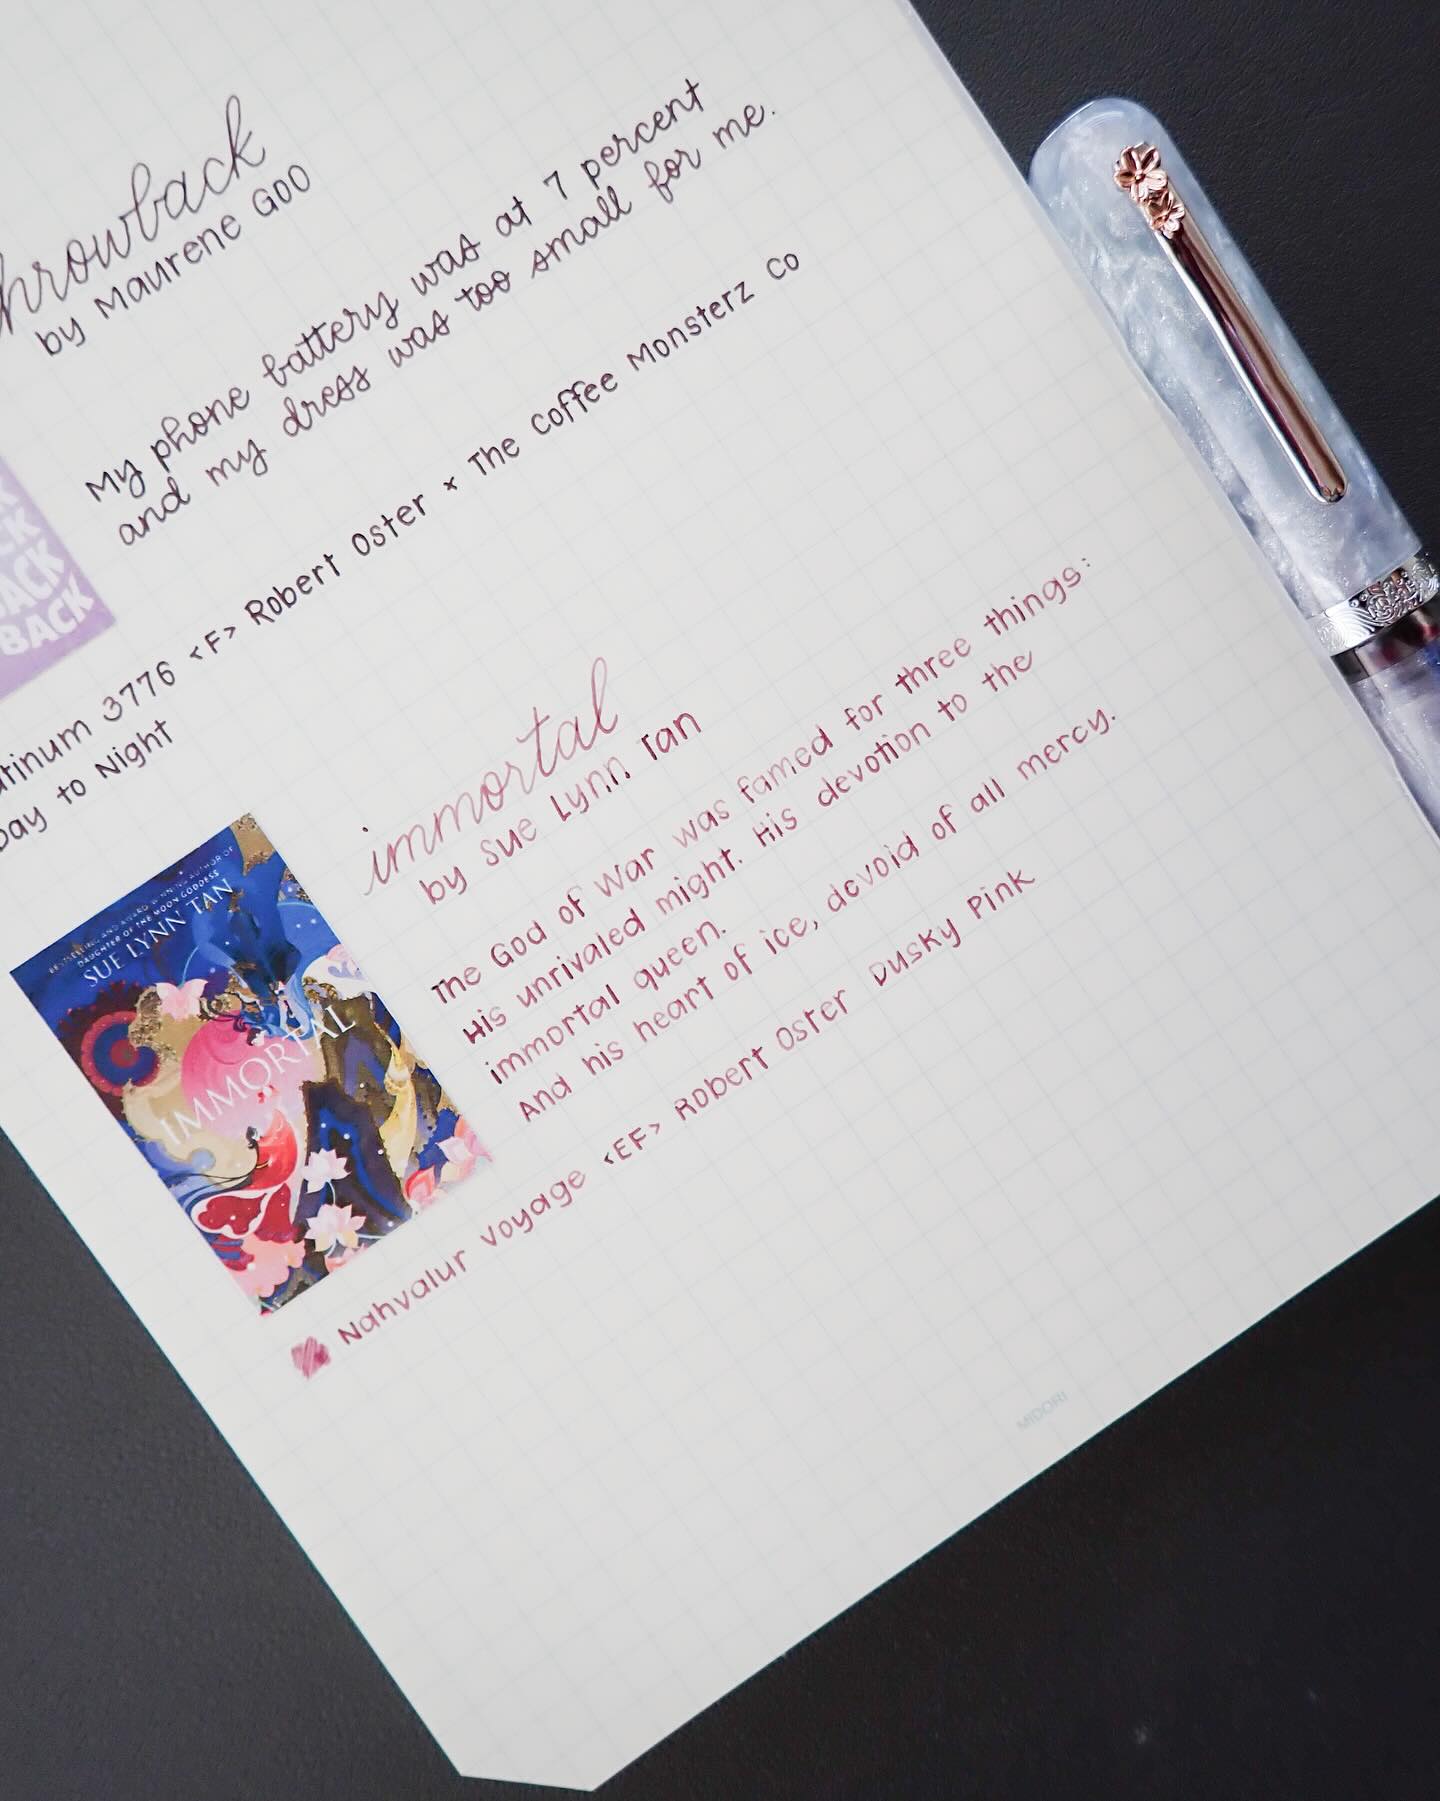 hrowback
by Maurene Goo
My phone battery was at 7 percent
and my dress was too small for me.
BACK
atinum 3776 <F> Robert Oster × The Coffee Monsterz Co
Day to Night
immortal
by Sue Lynn Tan
The God of War was famed for three things:
His unrivaled might. His devotion to the
immortal queen.
And his heart of ice, devoid of all mercy.
BESTSELLING AND AWARD-WINNING AUTHOR OF
DAUGHTER OF THE MOON GODDESS
SUE LYNN TAN
IMMORTAL
Nahvalur Voyage <EF> Robert Oster Dusky Pink
MIDORI